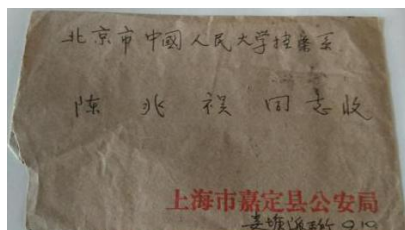 北京市中國人民大学档案系
陈兆祦同志收
上海市嘉定县公安局
娄塘派出所